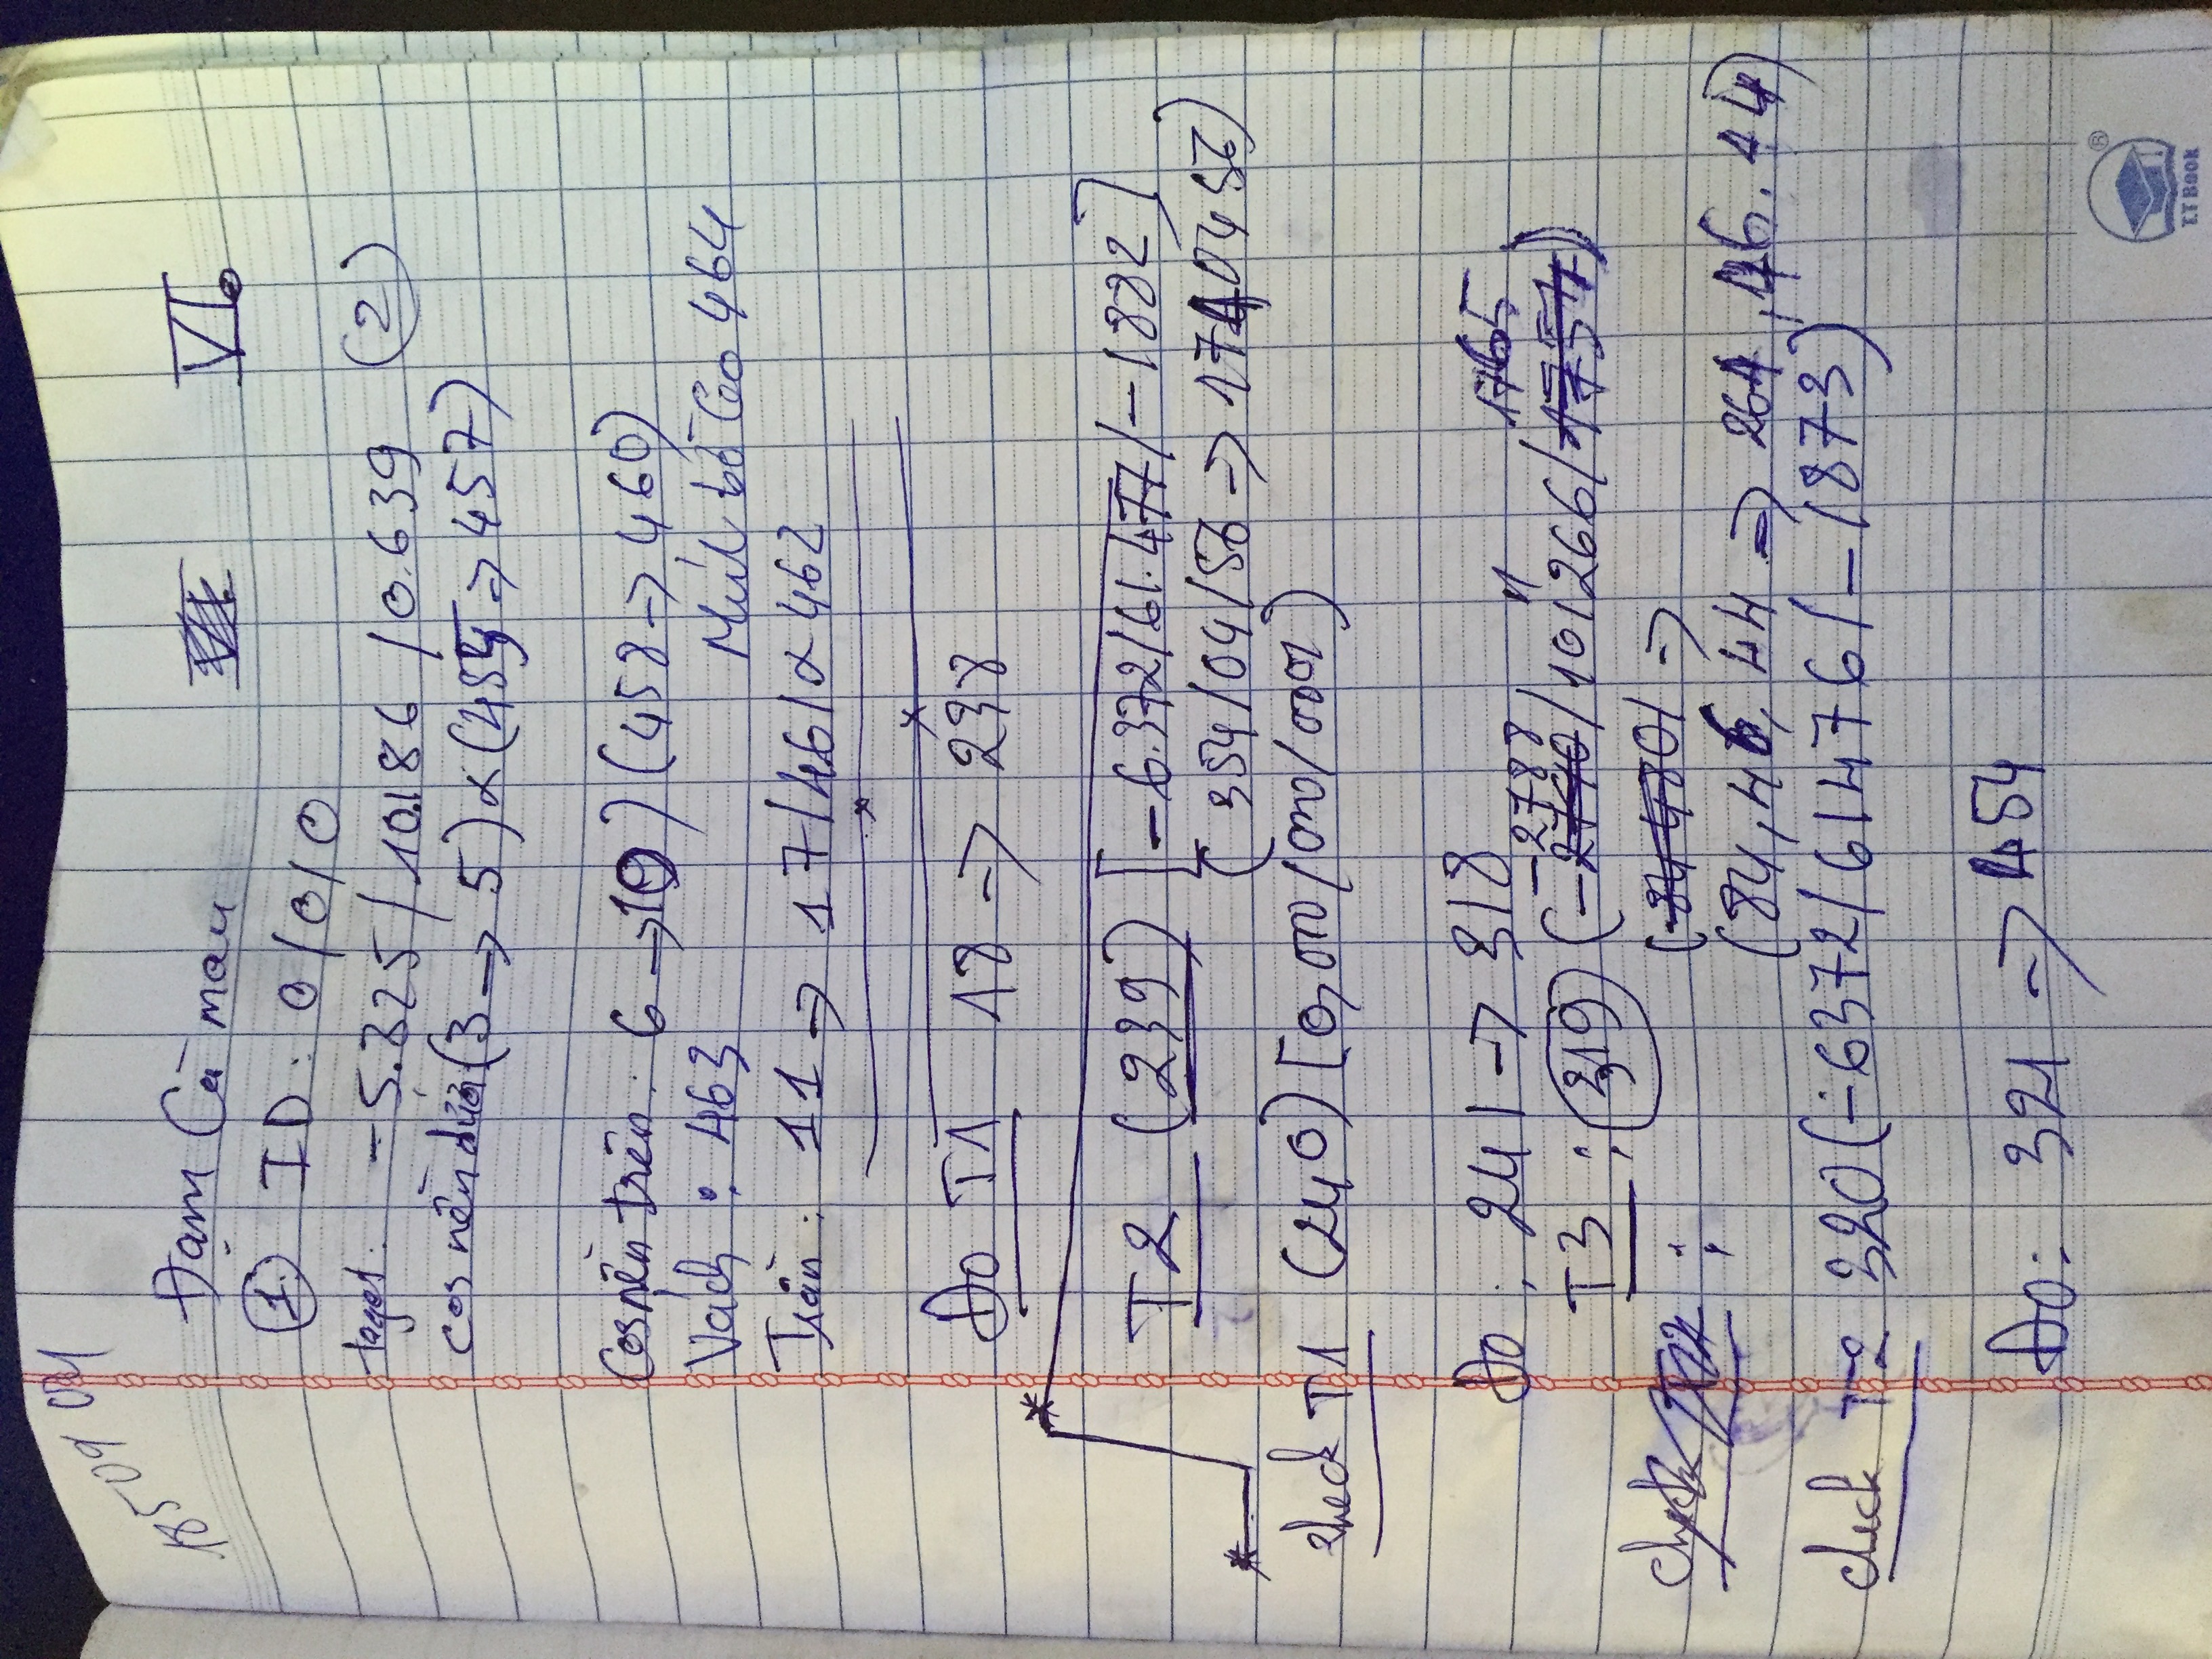 18509 04
Đạm Cà mau VI.
1. ID: 0/0/0
taget: -5.325/10.186/0.639 (2)
cos nền dưới (3 → 5) & (455 → 457)
Cos nền trên: 6 → 10) (458 → 460)
Vách: 463 464
Trần: 11 → 17/461 & 462
Đo T1 18 → 238
T2 (239) [-6.372/61.477/-1882]
(354/04/56 → 1740456)
check T1 (240) [0,000/000/0001)
Đo: 241 → 318
-2788 " 1765
T3: 319 (-2790/101266/1757)
(844801 →
(84,46,44 → 264,46.44)
check T2 320 (-6372/61476/-1873)
Đo: 321 → 454
T.T BOOK
®